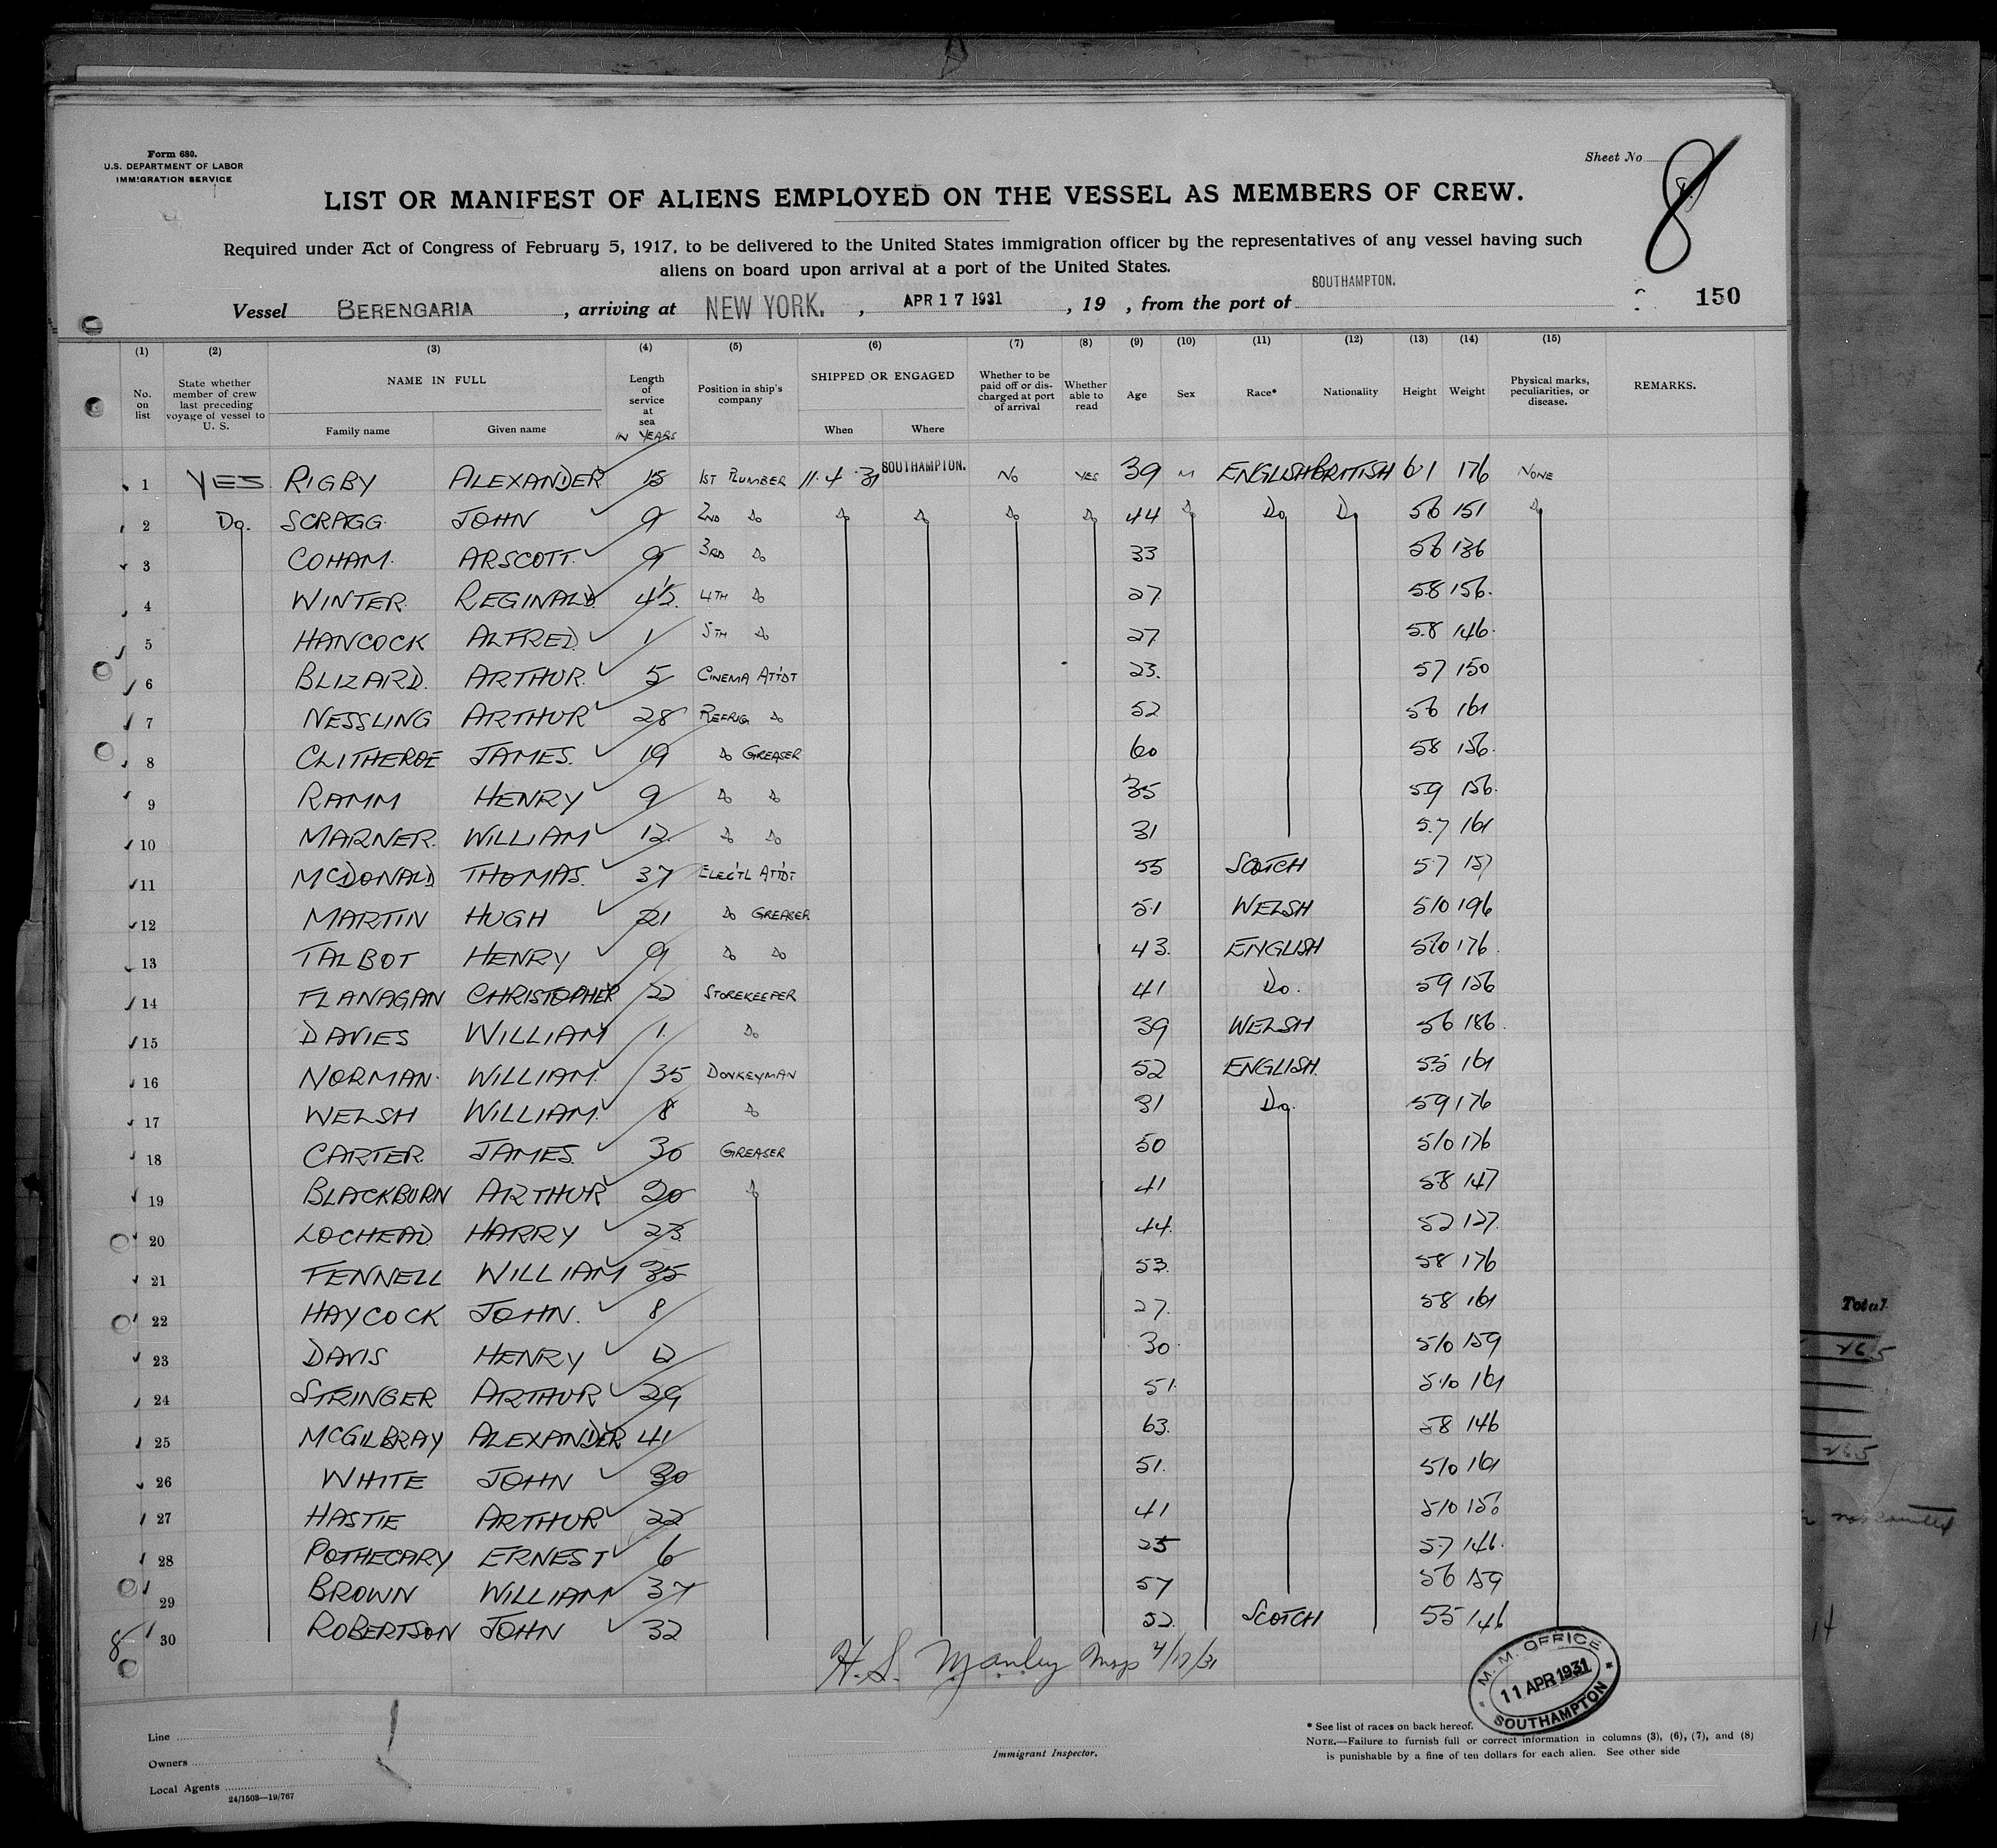 Form 680.
U.S. DEPARTMENT OF LABOR
IMMIGRATION SERVICE
Sheet No. 8
LIST OR MANIFEST OF ALIENS EMPLOYED ON THE VESSEL AS MEMBERS OF CREW.
Required under Act of Congress of February 5, 1917, to be delivered to the United States immigration officer by the representatives of any vessel having such
aliens on board upon arrival at a port of the United States.
Vessel BERENGARIA, arriving at NEW YORK., APR 17 1931, 19 , from the port of SOUTHAMPTON. 150
(1) (2) (3) (4) (5) (6) (7) (8) (9) (10) (11) (12) (13) (14) (15)
No. on list State whether member of crew last preceding voyage of vessel to U. S. NAME IN FULL Family name Given name Length of service at sea IN YEARS Position in ship's company SHIPPED OR ENGAGED When Where Whether to be paid off or discharged at port of arrival Whether able to read Age Sex Race* Nationality Height Weight Physical marks, peculiarities, or disease. REMARKS.
1 YES RIGBY ALEXANDER 15 1ST PLUMBER 11.4.31 SOUTHAMPTON. NO YES 39 M ENGLISH BRITISH 6·1 176 NONE
2 Do. SCRAGG JOHN 9 2ND Do Do Do Do Do 44 Do Do Do 56 151 Do
3 COHAM. ARSCOTT. 9 3RD Do 33 56 136
4 WINTER REGINALD 4½ 4TH Do 27 58 156.
5 HANCOCK ALFRED 1 5TH Do 27 58 146.
6 BLIZARD. ARTHUR. 5 CINEMA ATTDT 23. 57 150
7 NESSLING ARTHUR 28 REFRIG Do 52 56 161
8 CLITHEROE JAMES. 19 Do GREASER 60 58 156.
9 RAMM HENRY 9 Do Do 35 59 156.
10 MARNER. WILLIAM 12 Do Do 31 5.7 161
11 MCDONALD THOMAS. 37 ELECT'L ATTDT 55 SCOTCH 57 157
12 MARTIN HUGH 21 Do GREASER 51 WELSH 510 196
13 TALBOT HENRY 9 Do Do 43. ENGLISH 510 176.
14 FLANAGAN CHRISTOPHER 22 STOREKEEPER 41 Do. 59 156
15 DAVIES WILLIAM 1. Do 39 WELSH 56 186.
16 NORMAN. WILLIAM. 35 DONKEYMAN 52 ENGLISH. 55 161
17 WELSH WILLIAM. 8 Do 31 Do. 59 176
18 CARTER JAMES. 30 GREASER 50 510 176
19 BLACKBURN ARTHUR 20 Do 41 58 147
20 LOCHEAD HARRY 23 44. 52 127.
21 FENNELL WILLIAM 35 53. 58 176
22 HAYCOCK JOHN. 8 27. 58 161
23 DAVIS HENRY 12 30. 510 159
24 STRINGER ARTHUR 29 51. 510 161
25 MCGILBRAY ALEXANDER 41 63. 58 146
26 WHITE JOHN 30 51. 510 161
27 HASTIE ARTHUR 22 41 510 156
28 POTHECARY ERNEST 6 25 57 146.
29 BROWN WILLIAM 37 57 56 159
30 ROBERTSON JOHN 32 52. SCOTCH 55 146
8
H. S. Manley 4/17/31
M. M. OFFICE
11 APR 1931
SOUTHAMPTON
Line
Owners
Local Agents
24/1503—19/767
Immigrant Inspector.
* See list of races on back hereof.
NOTE.—Failure to furnish full or correct information in columns (3), (6), (7), and (8)
is punishable by a fine of ten dollars for each alien. See other side
Total
265
265
14